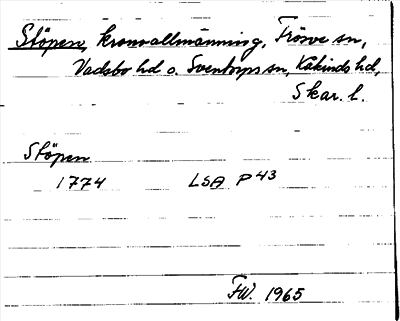 Stöpen, kronoallmänning, Frösve sn,
Vadsbo hd o. Sventorps sn, Kåkinds hd,
Skar. l.
Stöpen
1774 LSA P 43
FW. 1965